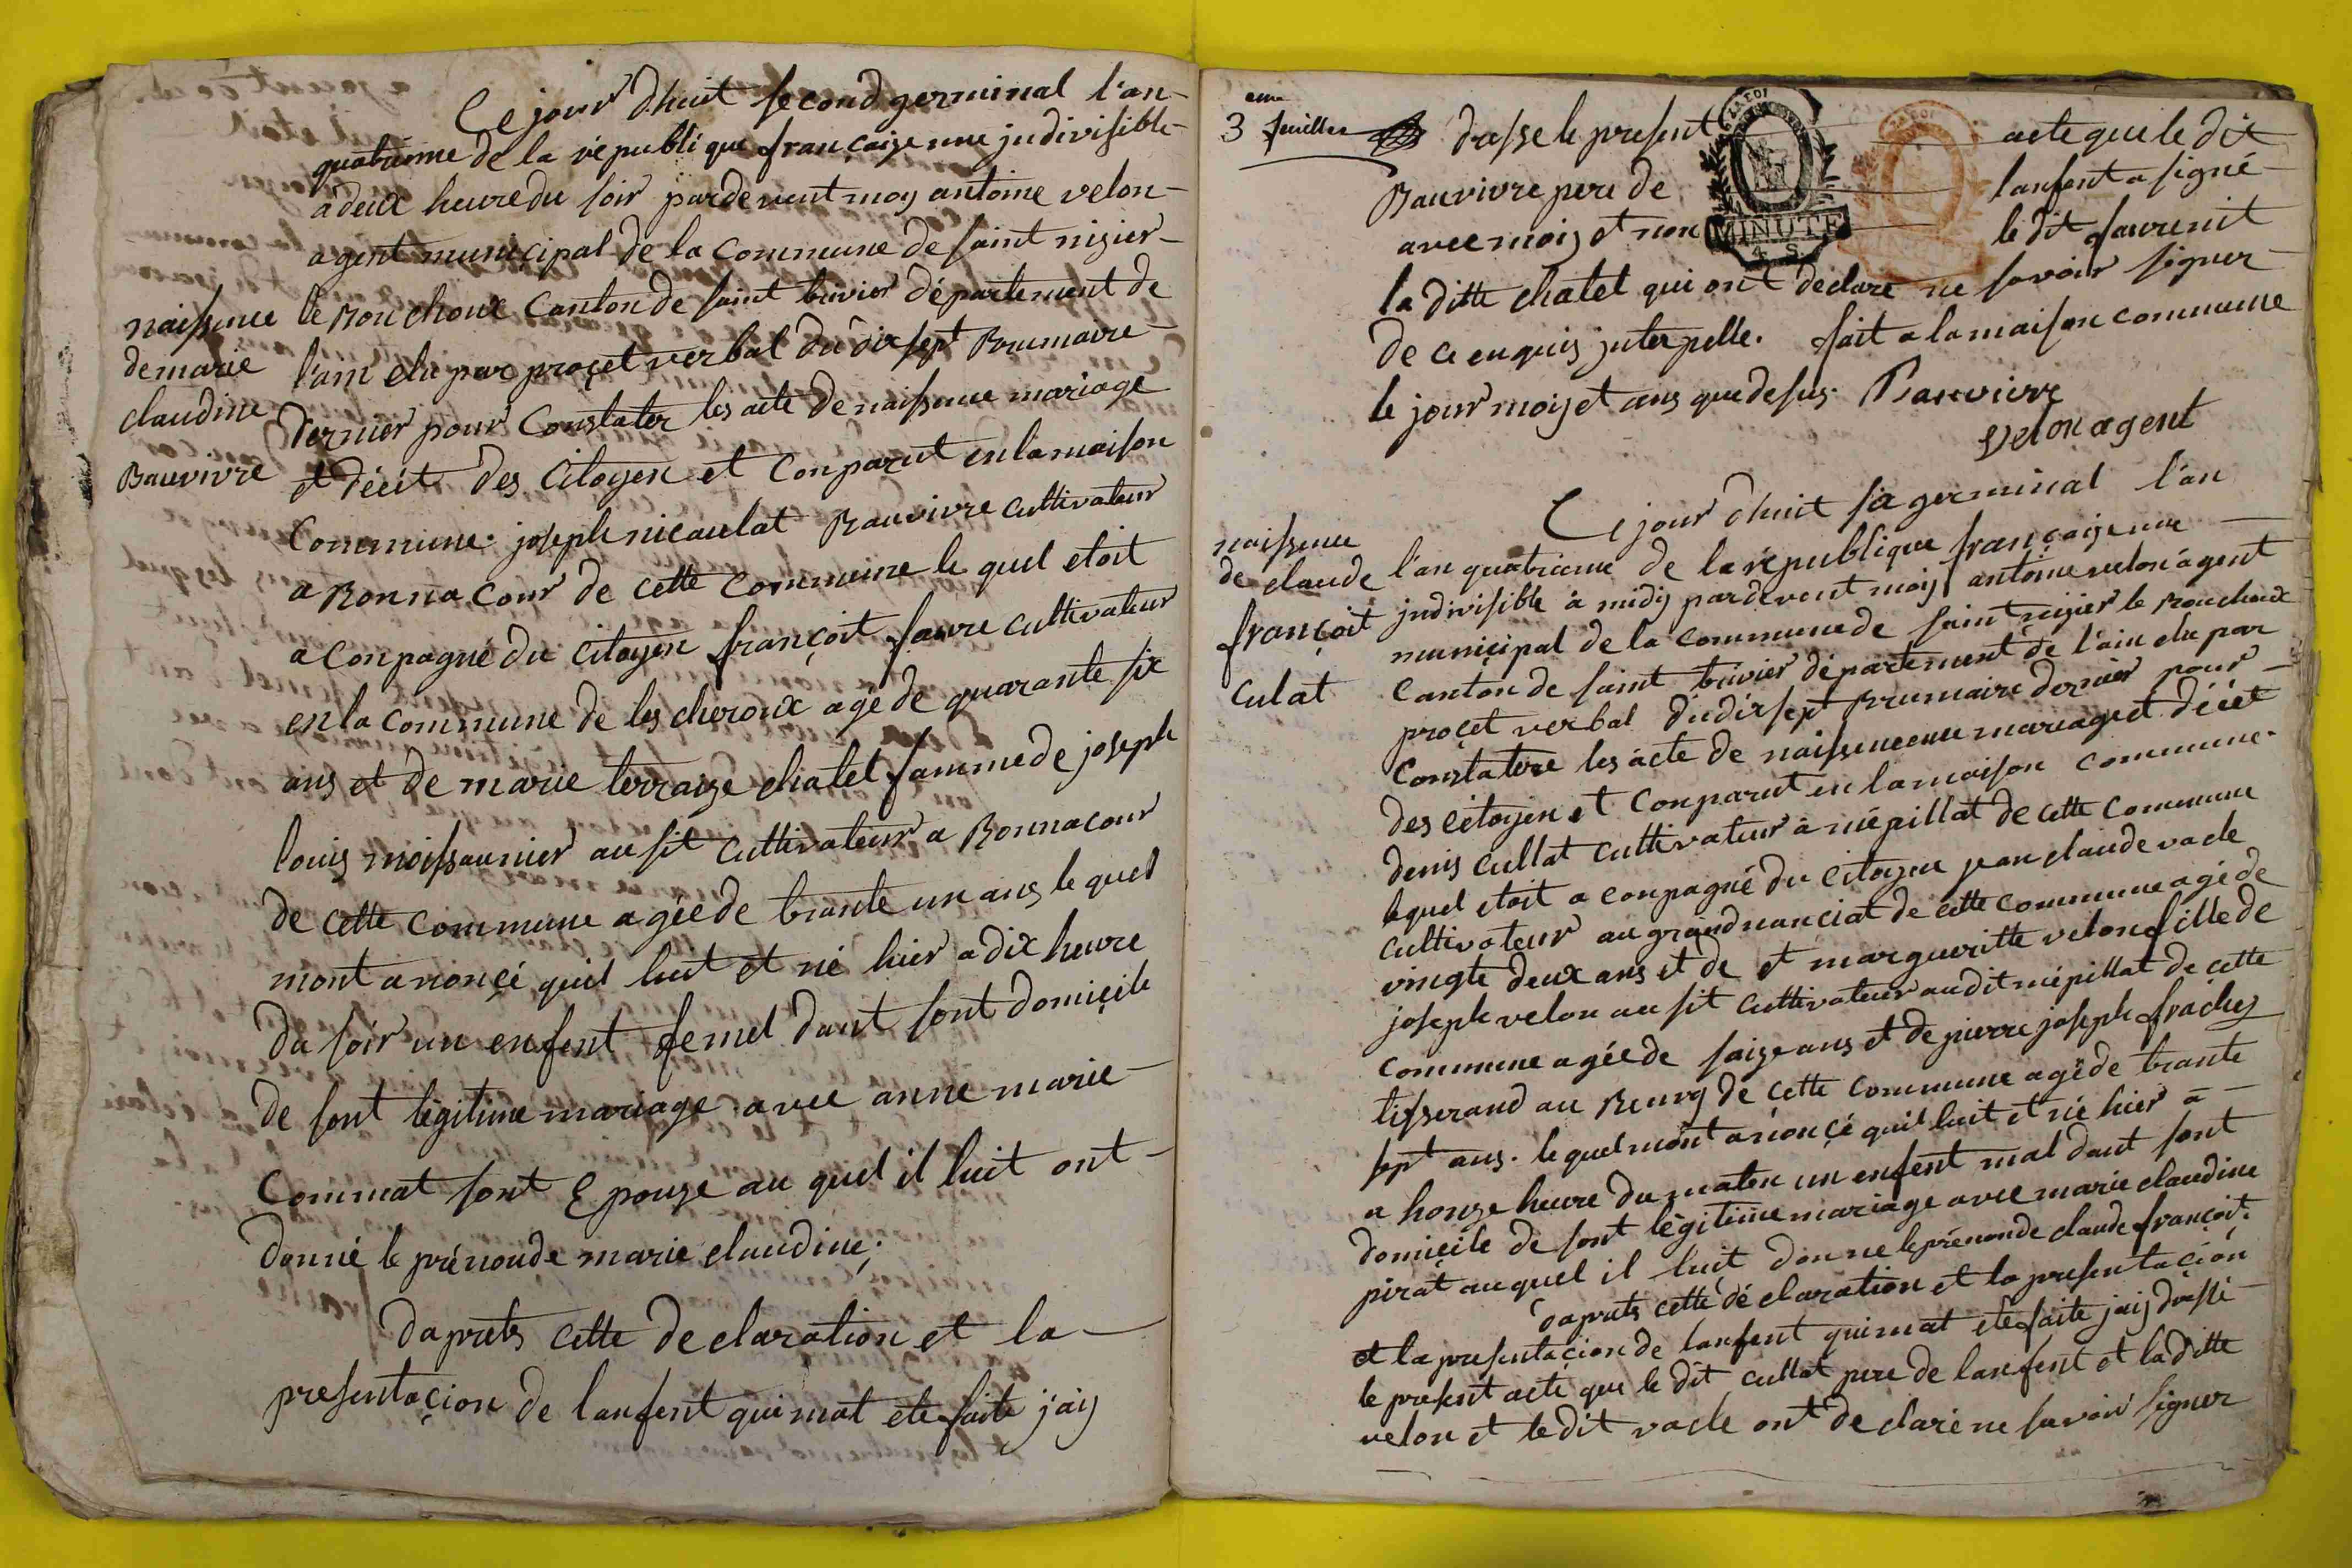 Ce jour d'huit second germinal l'an
quatrieme de la république françaize une jndivisible
a deux heure du soir pardevent moy antoine velon
agent municipal de la commune de saint nizier
naissence
de marie
claudine
Bauvivre
le Bouchoux Canton de saint trivier département de
l'ain elu par proçet verbal du dix sept Brumaire
dernier pour Constater les acte de naissence mariage
et décèt des Citoyen et Conparut en la maison
Commune. joseph nicaulat Bauvivre cultivateur
a Bonnacour de cette commune le quel etoit
a conpagné du citoyen françoit favre cultivateur
en la commune de les cheroux agé de quarante six
ans et de marie terraize chatel famme de joseph
louis moissaunier au sit cultivateur a Bonnacour
de cette commune agée de trante un ans le quel
mont anonçé quil luit et né hier a dix heure
du soir un enfent femel dant sont domiçile
de sont légitime mariage avec anne marie
Commat sont Epouze au quel il luit ont
donné le prénon de marie claudine;
daprets cette declaration et la
presentaçion de lanfent qui mat ete faite j'aij
3 eme feuillet
drasse le present acte que le dit
Bauvivre pere de lanfent a signé
avec moij et non le dit favre nit
la ditte chatel qui ont declare ne savoir signer
de ce enquis jnterpelle. fait a la maison commune
le jour mois et ans que desus. Bauvivre
velon agent
MINUTE
4 S
Ce jour d'huit six germinal l'an
naissence
de claude
françoit
Culat
l'an quatrieme de la république françaize une
jndivisible à midij pardevent moij antoine velon agent
municipal de la commune de saint nizier le Bouchoux
Canton de saint trivier département de l'ain elu par
proçet verbal du dix sept Brumaire dernier pour
Constatere les acte de naissence mariage et décèt
des citoyen et Conparut en la maison commune.
denis cullat cultivateur à mépillat de cette commune
lequel etoit a conpagné du citoyen jean claude vacle
cultivateur au grand nanciat de cette commune agé de
vingte deux ans et de et margueritte velon fille de
joseph velon au sit cultivateur au dit mépillat de cette
commune agée de saize ans et de pierre joseph frachez
tisserand au Bourg de cette commune agé de trante
sept ans. le quel mont anonçé quil luit et né hier a
a honze heure du maten un enfent mal dant sont
domiçile de sont légitime mariage avec marie claudine
pirat au quel il luit donne le prénon de claude françoit.
daprets cette déclaration et la presentaçion
et la presentaçion de lanfent qui mat ete faite jaij drassé
le present acte que le dit cullat pere de lanfent et la ditte
velon et le dit vacle ont declaré ne savoir signer